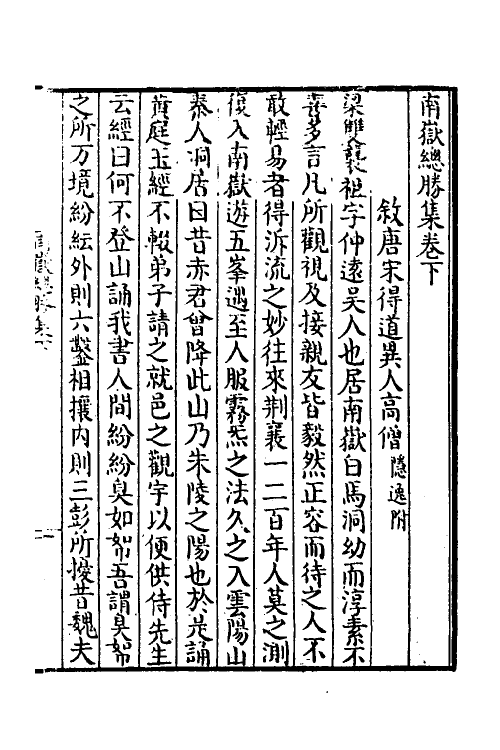 南嶽總勝集卷下
敘唐宋得道異人高僧隱逸附
梁雙襲祖字仲遠吳人也居南嶽白馬洞幼而淳素不
喜多言凡所觀視及接親友皆毅然正容而待之人不
敢輕易者得泝流之妙往來荆襄一二百年人莫之測
復入南嶽遊五峯遇至人服霧炁之法久之入雲陽山
秦人洞居曰昔赤君曾降此山乃朱陵之陽也於是誦
黃庭玉經不輟弟子請之就邑之觀宇以便供侍先生
云經曰何不登山誦我書人間紛紛臭如帤吾謂臭帤
之所万境紛紜外則六鑿相攘内則三彭所擾昔魏夫